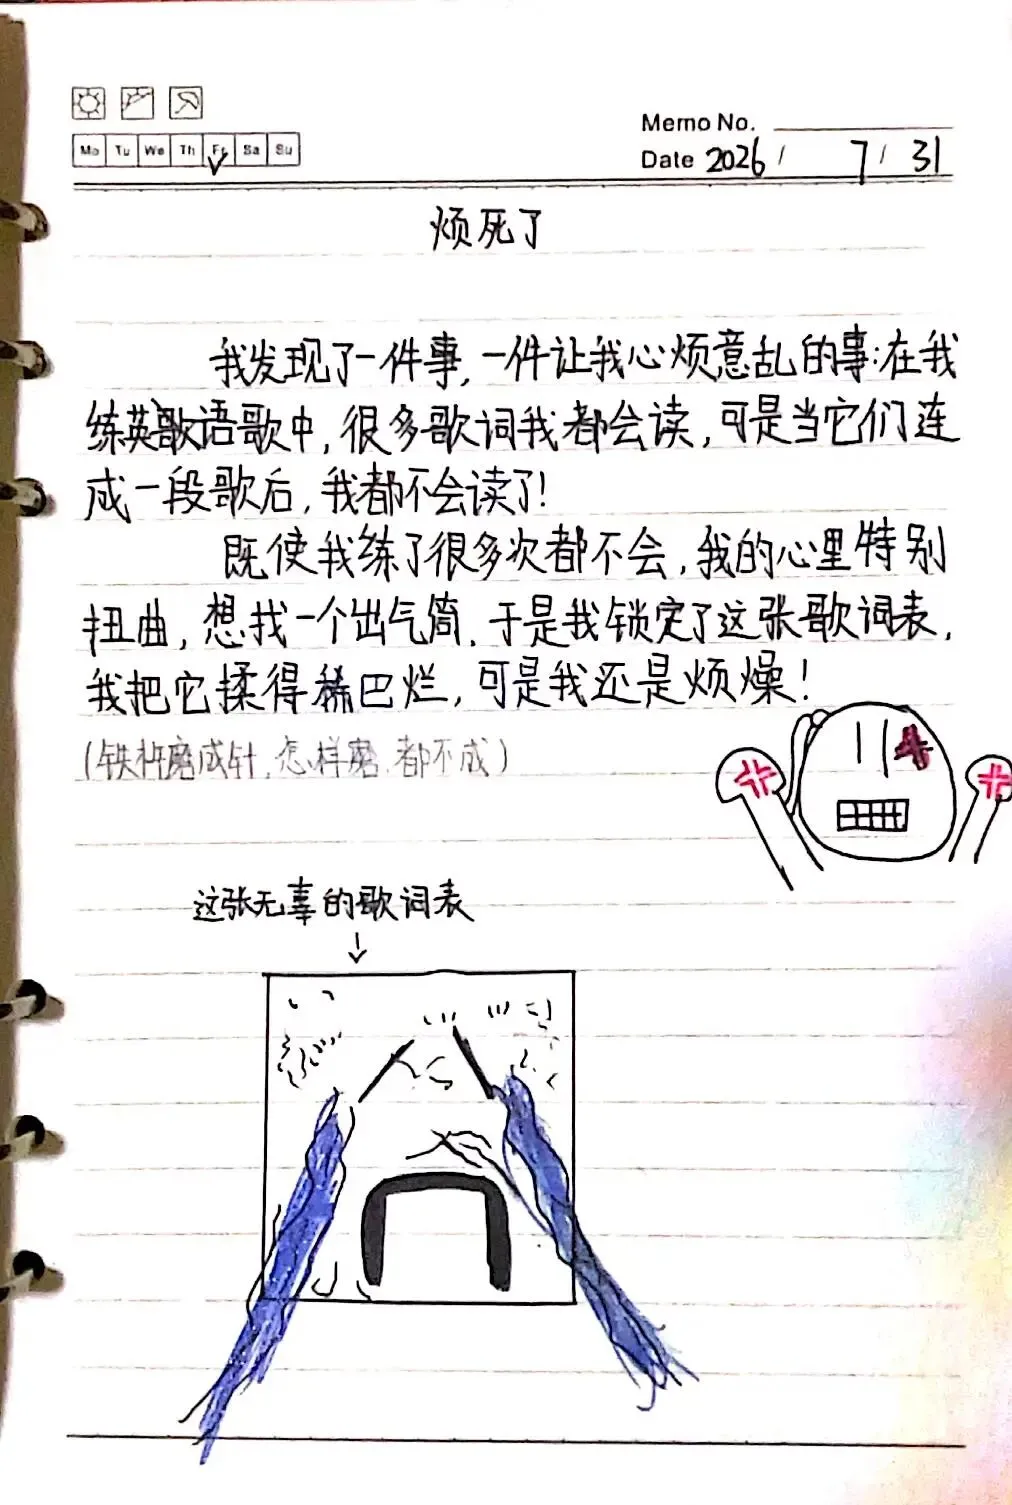 Mo Tu We Th Fr Sa Su
Memo No.
Date 2026 / 7 / 31
烦死了
我发现了一件事,一件让我心烦意乱的事:在我
练英歌语歌中,很多歌词我都会读,可是当它们连
成一段歌后,我都不会读了!
既使我练了很多次都不会,我的心里特别
扭曲,想找一个出气筒,于是我锁定了这张歌词表,
我把它揉得稀巴烂,可是我还是烦燥!
(铁杵磨成针,怎样磨,都不成)
这张无辜的歌词表